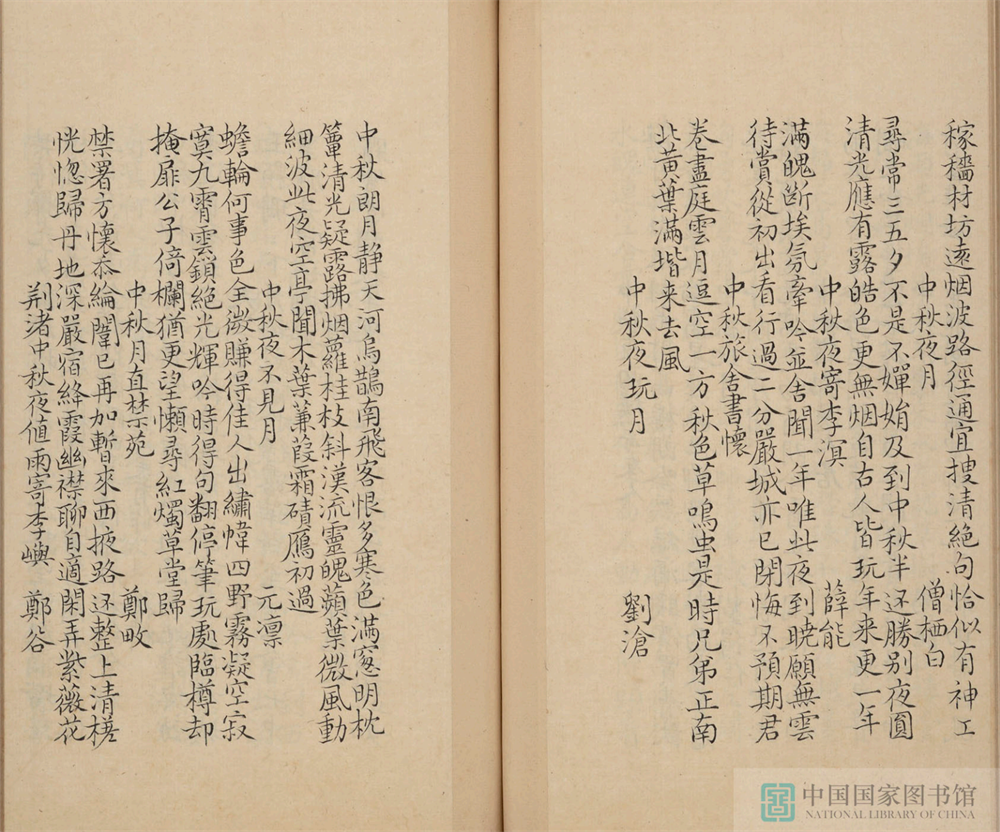 稼穡材坊遠烟波路徑通宜搜清絶句恰似有神工
中秋夜月　僧栖白
尋常三五夕不是不嬋娟及到中秋半还勝别夜圓
清光應有露皓色更無烟自古人皆玩年来更一年
中秋夜寄李溟　薛能
滿魄断埃氛牽吟並舍聞一年唯此夜到曉願無雲
待賞從初出看行過二分嚴城亦已閉悔不預期君
中秋旅舍書懷
卷盡庭雲月逗空一方秋色草鳴虫是時兄弟正南
北黄葉滿堦来去風
中秋夜玩月　劉滄
中秋朗月静天河烏鵲南飛客恨多寒色滿窓明枕
簟清光凝露拂烟蘿桂枝斜漢流靈魄蘋葉微風動
細波此夜空亭聞木葉蒹葭霜磧鴈初過
中秋夜不見月　元凛
蟾輪何事色全微賺得佳人出繡幃四野霧凝空寂
寞九霄雲鎖絶光輝吟時得句翻停筆玩處臨樽却
掩扉公子倚欄猶更望懶尋紅燭草堂歸
中秋月直禁苑　鄭畋
禁署方懷忝綸闈已再加暫來西掖路还整上清槎
恍惚歸丹地深嚴宿絳霞幽襟聊自適閑弄紫薇花
荆渚中秋夜值雨寄李嶼　鄭谷
中国国家图书馆
NATIONAL LIBRARY OF CHINA